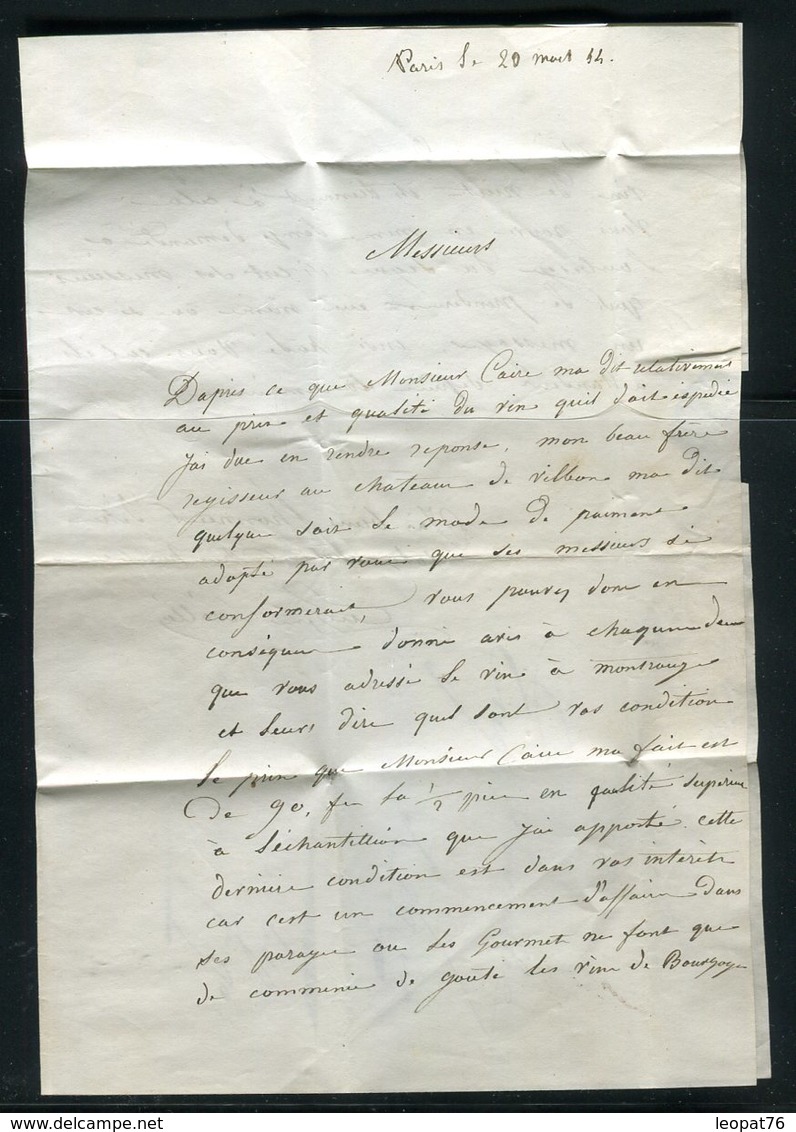 Paris le 20 mars 54.
Messieurs
Dapres ce que Monsieur Caire ma dit relativement
au prix et qualité du vin quil doit expedié
jai due en rendre reponse, mon beau frère
regisseur au chateau de villbon ma dit
quelque soit le mode de paiment
adopté par vous que ses messieurs sé
conformerait, vous pouvez donc en
conséquence donné avis à chaqun deux
que vous adressé le vin à montrouge
et leurs dire quel sont vos condition
le prix que Monsieur Caire ma fait est
de 90, fr la 1/2 piece en qualité superieur
à léchantillion que jai apporté cette
derniere condition est dans vos intérêts
car cest un commencement d'affaire dans
ses parages ou les Gourmet ne font que
de commencé de gouté les vins de Bourgogne
leopat76